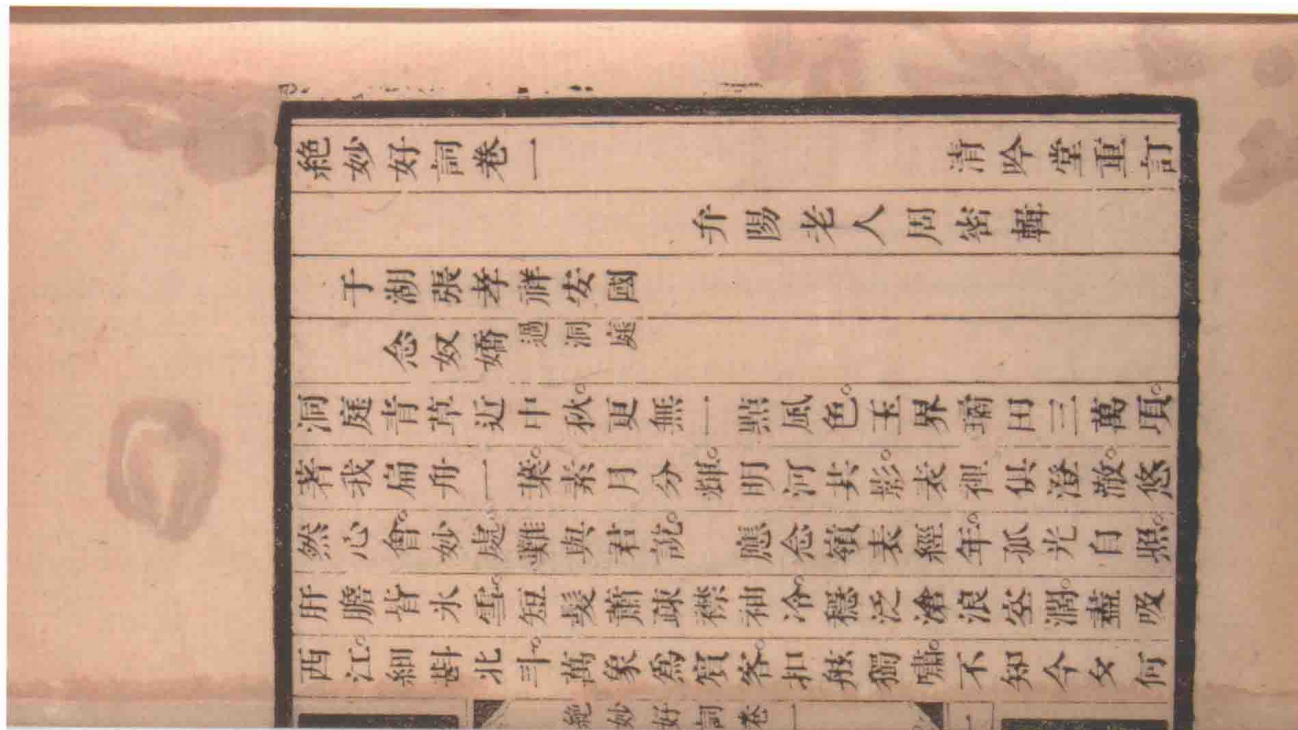 絶妙好詞卷一 清吟堂重訂
弁陽老人周密輯
于湖張孝祥安國
念奴嬌 過洞庭
洞庭青草近中秋。更無一點風色。玉界璚田三萬頃。
著我扁舟一葉。素月分輝。明河共影。表裡俱澄澈。悠
然心會。妙處難與君說。 應念嶺表經年。孤光自照。
肝膽皆氷雪。短髮蕭疎襟袖冷。穩泛滄浪空濶。盡吸
西江。細斟北斗。萬象爲賓客。扣舷獨嘯。不知今夕何
絶妙好詞卷一 一